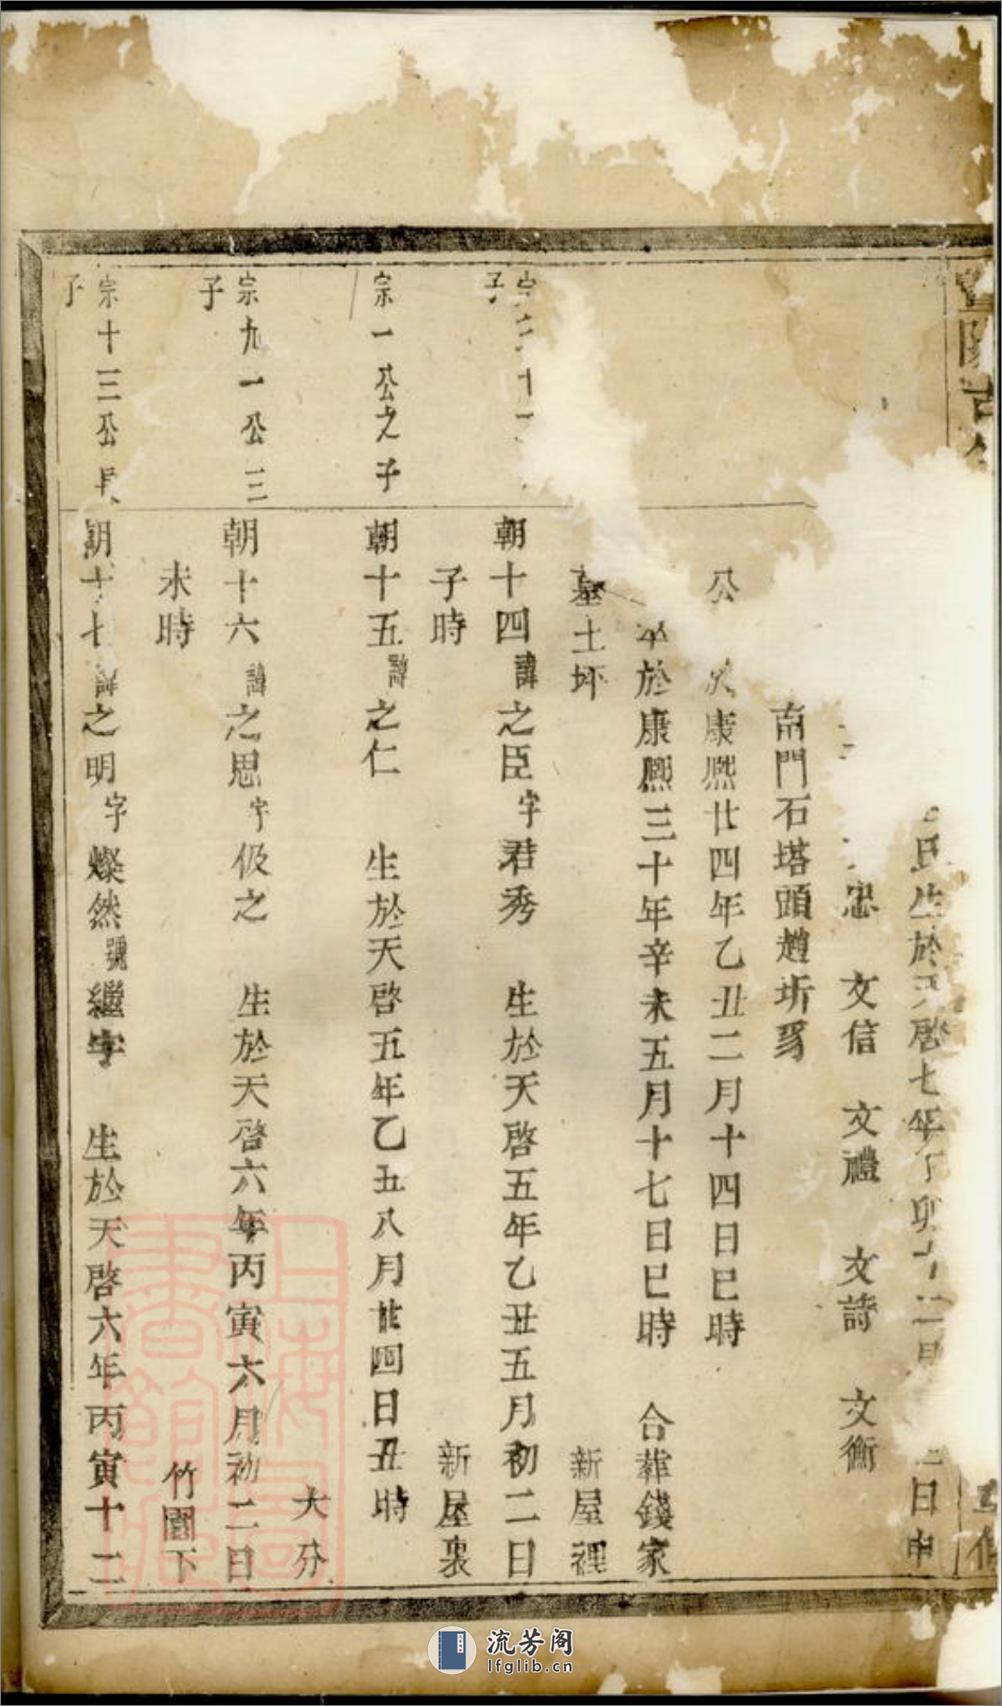 氏生於天啓七年丁卯十二月 日申
忠 文信 文禮 文詩 文衡
南門石塔頭趙圻豸
公 康熙廿四年乙丑二月十四日巳時
於康熙三十年辛未五月十七日巳時 合葬錢家
墓土坏 新屋裡
子
朝十四諱之臣字君秀 生於天啓五年乙丑五月初二日
子時 新屋裏
宗一公之子
朝十五諱之仁 生於天啓五年乙五八月廿四日丑時
大分
宗九一公三
子
朝十六諱之思字伋之 生於天啓六年丙寅六月初二日
未時 竹園下
宗十三公長
子
朝十七諱之明字燦然號繼宇 生於天啓六年丙寅十二
上海圖書館藏
流芳阁
lfglib.cn